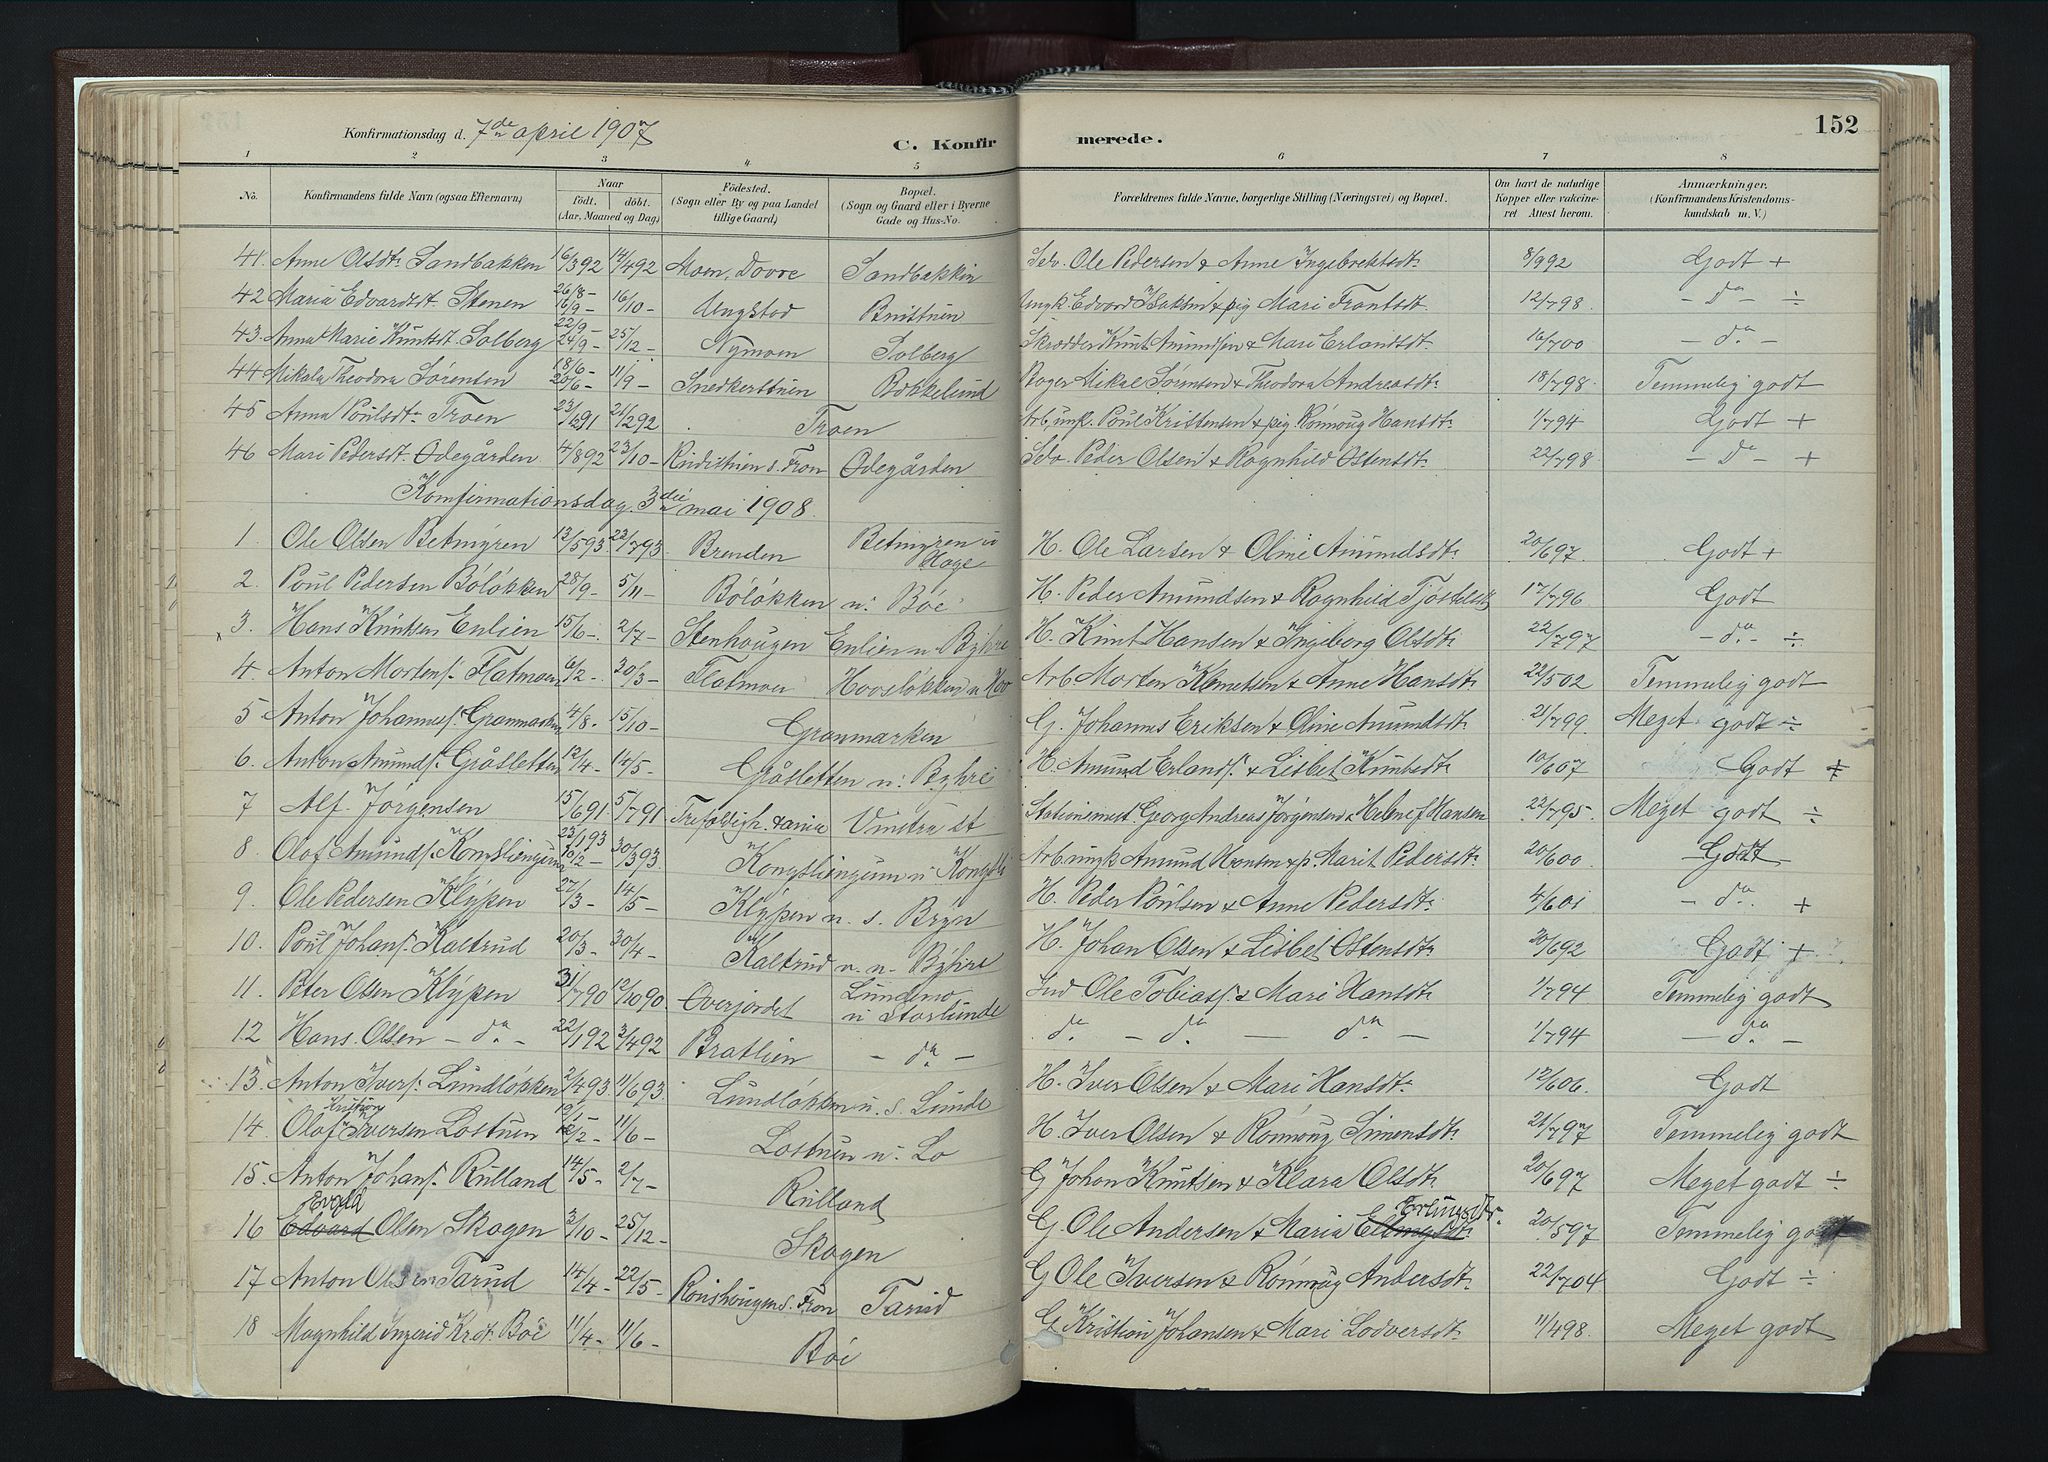 Konfirmationsdag d. 7de april 1907
C. Konfirmerede.
152
1 2 3 4 5 6 7 8
No. Konfirmandens fulde Navn (ogsaa Efternavn) Naar födt. döbt. (Aar, Maaned og Dag) Födested. (Sogn eller By og paa Landet tillige Gaard) Bopæl. (Sogn og Gaard eller i Byerne Gade og Hus-No. Forældrenes fulde Navne, borgerlige Stilling (Næringsvei) og Bopæl. Om havt de naturlige Kopper eller vakcineret Attest herom. Anmærkninger. (Konfirmandens Kristendomskundskab m. V.)
41. Anne Olsdtr Sandbakken 16/3 92 14/4 92 Moen, Dovre Sandbakken Selv. Ole Pedersen & Anne Ingebrektsdtr 8/9 92 Godt +
42 Maria Edvardsdt. Stenen 26/8 - 16/9 - 16/10 - Ungstad Ungk. Edvard Isaksen & pig Mari Frantsdt. 12/7 98. - da - ÷
43. Anna Marie Knutsdt. Solberg 22/9 - 24/9 - 25/12 - Nymoen Solberg Skrædder Knut Amundsen & Mari Erlandsdt. 16/7 00 - da -
44 Mikala Theodora Sørensen 18/6 - 20/6 - 11/9 - Snedkerstuen Bakkelund Bager Mikal Sørensen & Theodora Andreasdtr 18/7 98. Temmelig godt
45 Anna Poulsdtr Troen 23/12 91 21/2 92 Troen Arb. ungk. Poul Kristensen & pig Rønnoug Hansdtr 1/7 94 Godt +
46 Mari Pedersdt. Ødegården 4/8 92 23/10 - s. Fron Ødegården Selv. Peder Olsen & Ragnhild Østensdtr 22/7 98. - da - +
Konfirmationsdag 3die mai 1908.
1. Ole Olsen Betmyren 12/5 93 22/7 93. Brenden Betmyren u Hage H. Ole Larsen & Oline Amundsdtr 20/6 97. Godt +
2. Poul Pedersen Böløkken 28/9 - 5/11 - Böløkken u. Böe H. Peder Amundsen & Ragnhild 17/7 96. Godt
3. Hans Knutsen Enlien 15/6 - 2/7 - Stenhougen Enlien u. Byhre H. Knut Hansen & Ingeborg Olsdtr 22/7 97 - da. - ÷
4. Anton Mortens. Flatmoen 6/2 - 30/3 - Flatmoen Hovsløkken u Hov Arb Morten Klemetsen & Anne Hansdtr 22/5 02 Temmelig godt
5 Anton Johannes. Granmarken 4/8 - 15/10 - Granmarken G. Johannes Eriksen & Oline Amundsdtr 21/7 99. Meget godt ÷
6. Anton Amunds. Gråsletten 12/4 - 14/5 - Gråsletten u. Byhre H. Amund Erlands. & Lisbet Knutsdtr 10/6 07 Godt +
7 Alf. Jørgensen 15/6 91 5/7 91 Trefoldigh. Vinstra st Stationsmest. Georg Andreas Jørgensen & Helene f. Hansen 22/7 95. Meget godt ÷
8. Olaf Amunds. Kongsliengum 23/1 93 10/2 - 30/3 93. Kongsliengum u Kongsli Arb ungk Amund Hansen & p. Marit Pedersdtr 20/6 00. Godt
9. Ole Pedersen Klypen 27/3 - 14/5 - Klypen u. s. Bryn H. Peder Poulsen & Anne Pedersdtr 4/6 01 - da. +
10. Poul Johans. Kaltrud 20/3 - 30/4 - Kaltrud u. n. Byhre H. Johan Olsen & Lisbet Østensdtr 30/6 92 Godt +
11. Peter Olsen Klypen 31/7 90 12/10 90. Overjordet Lundemo u Storlunde Ind Ole Tobias. & Mari Hansdtr 1/7 94 Temmelig godt
12 Hans. Olsen - da. - 22/1 92 3/4 92 Bratlien - da - da. - da. - da - 1/7 94 - da -
13. Anton Ivers. Lundløkken 2/4 93. 11/6 93. Lundløkken u. s. Lunde H. Iver Olsen & Mari Hansdtr 12/6 06. Godt
14. Olaf Kristian Iversen Lostuen 12/2 - 11/6 - Lostuen u. Lo H. Iver Olsen & Rønnoug Simensdtr 21/7 97 Temmelig godt
15. Anton Johans. Rulland 14/5 - 2/7 - Rulland G Johan Knutsen & Klara Olsdtr 20/6 97 Meget godt ÷
16 Edvard Evald Olsen Skogen 3/10 - 25/12 - Skogen G. Ole Andersen & Maria Ellingsdtr Erlingsdtr. 20/5 97 Temmelig godt
17. Anton Olsen Tarud 14/4 - 22/5 - s. Fron Tarud G Ole Iversen & Rønnoug Andersdtr 22/7 04. Godt ÷
18 Magnhild Ingerid Krdt. Böe 11/4 - 11/6 - Böe G. Kristian Johansen & Mari Lodversdtr 11/4 98. Meget godt